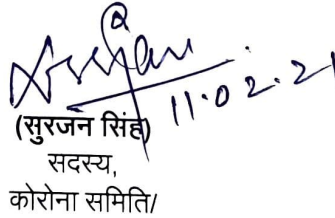 11.02.21
(सुरजन सिंह)
सदस्य,
कोरोना समिति/